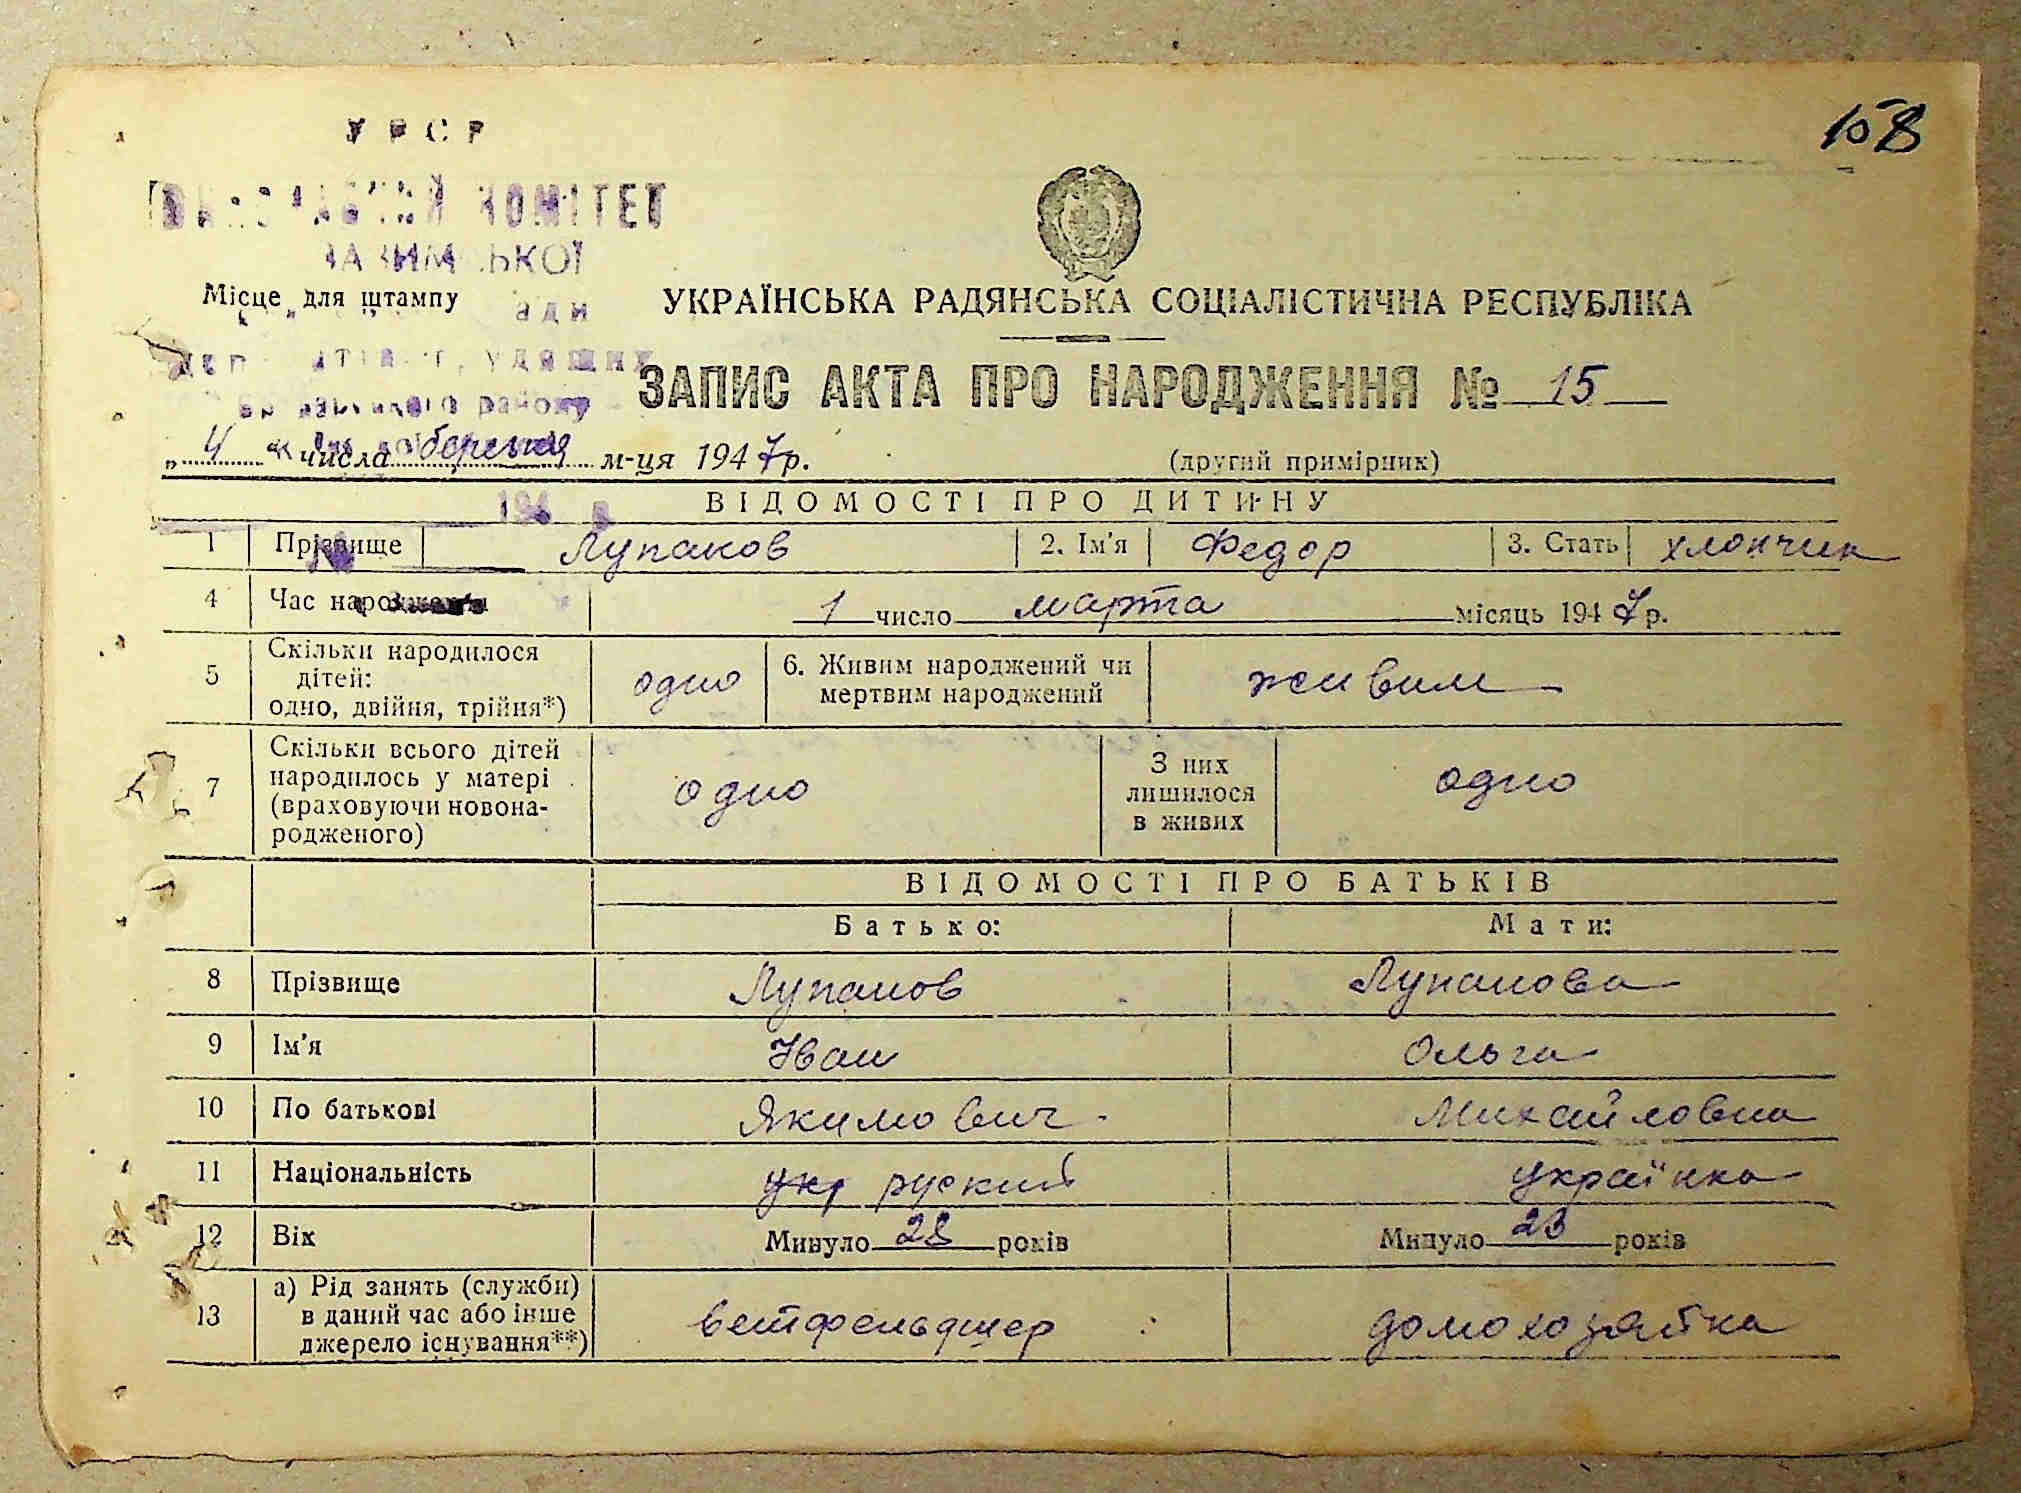 158
УРСР
ВИКОНАВЧИЙ КОМІТЕТ
ЗАЗИМСЬКОЇ
Місце для штампу
ради
УКРАЇНСЬКА РАДЯНСЬКА СОЦІАЛІСТИЧНА РЕСПУБЛІКА
депутатів трудящих
ЗАПИС АКТА ПРО НАРОДЖЕННЯ № 15
району
„ 4 “ числа березня м-ця 1947 р.
(другий примірник)
194 р
ВІДОМОСТІ ПРО ДИТИНУ
1 Прізвище Лупанов 2. Ім'я Федор 3. Стать хлопчик
4 Час народження 1 число марта місяць 1947 р.
5 Скільки народилося дітей: одно, двійня, трійня*) одно 6. Живим народжений чи мертвим народжений живим
7 Скільки всього дітей народилось у матері (враховуючи новонародженого) одно З них лишилося в живих одно
ВІДОМОСТІ ПРО БАТЬКІВ
Батько: Мати:
8 Прізвище Лупанов Лупанова
9 Ім'я Іван Ольга
10 По батькові Якимович Михайловна
11 Національність укр руский українка
12 Вік Минуло 28 років Минуло 23 років
13 а) Рід занять (служби) в даний час або інше джерело існування**) ветфельдшер домохозяйка